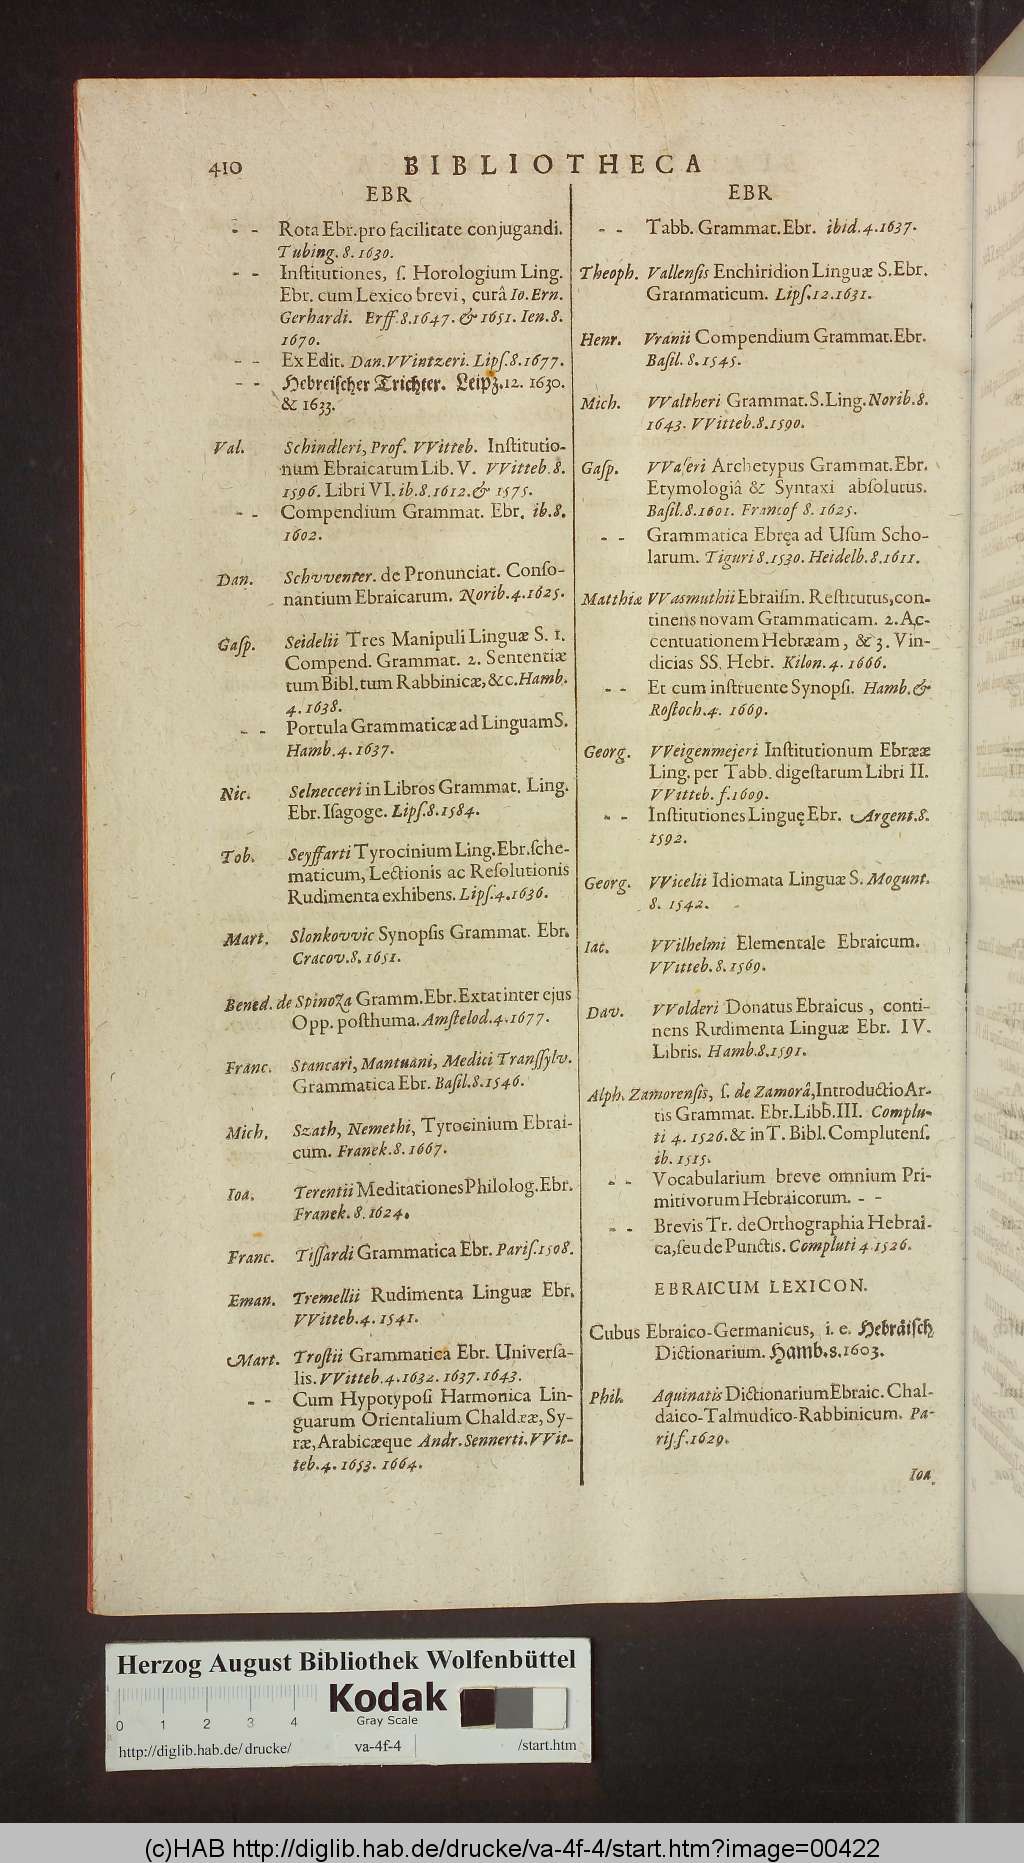 410
BIBLIOTHECA
EBR
- - Rota Ebr. pro facilitate conjugandi.
Tubing. 8. 1630.
- - Inſtitutiones, ſ. Horologium Ling.
Ebr. cum Lexico brevi, curâ Io. Ern.
Gerhardi. Erff. 8. 1647. & 1651. Ien. 8.
1670.
- - Ex Edit. Dan. VVintzeri. Lipſ. 8. 1677.
- - Hebreiſcher Trichter. Leipz. 12. 1630.
& 1633.
Val. Schindleri, Prof. VVitteb. Inſtitutio-
num Ebraicarum Lib. V. VVitteb. 8.
1596. Libri VI. ib. 8. 1612. & 1575.
- - Compendium Grammat. Ebr. ib. 8.
1602.
Dan. Schvventer. de Pronunciat. Conſo-
nantium Ebraicarum. Norib. 4. 1625.
Gaſp. Seidelii Tres Manipuli Linguæ S. 1.
Compend. Grammat. 2. Sententiæ
tum Bibl. tum Rabbinicæ, &c. Hamb.
4. 1638.
- - Portula Grammaticæ ad Linguam S.
Hamb. 4. 1637.
Nic. Selnecceri in Libros Grammat. Ling.
Ebr. Iſagoge. Lipſ. 8. 1584.
Tob. Seyffarti Tyrocinium Ling. Ebr. ſche-
maticum, Lectionis ac Reſolutionis
Rudimenta exhibens. Lipſ. 4. 1636.
Mart. Slonkovvic Synopſis Grammat. Ebr.
Cracov. 8. 1651.
Bened. de Spinoza Gramm. Ebr. Extat inter ejus
Opp. poſthuma. Amſtelod. 4. 1677.
Franc. Stancari, Mantuani, Medici Tranſſylv.
Grammatica Ebr. Baſil. 8. 1546.
Mich. Szath, Nemethi, Tyrocinium Ebrai-
cum. Franek. 8. 1667.
Ioa. Terentii Meditationes Philolog. Ebr.
Franek. 8. 1624.
Franc. Tiſſardi Grammatica Ebr. Pariſ. 1508.
Eman. Tremellii Rudimenta Linguæ Ebr.
VVitteb. 4. 1541.
Mart. Troſtii Grammatica Ebr. Univerſa-
lis. VVitteb. 4. 1632. 1637. 1643.
- - Cum Hypotypoſi Harmonica Lin-
guarum Orientalium Chaldææ, Sy-
ræ, Arabicæque Andr. Sennerti. VVit-
teb. 4. 1653. 1664.
EBR
- - Tabb. Grammat. Ebr. ibid. 4. 1637.
Theoph. Vallenſis Enchiridion Linguæ S. Ebr.
Grammaticum. Lipſ. 12. 1631.
Henr. Vranii Compendium Grammat. Ebr.
Baſil. 8. 1545.
Mich. VValtheri Grammat. S. Ling. Norib. 8.
1643. VVitteb. 8. 1590.
Gaſp. VVaſeri Archetypus Grammat. Ebr.
Etymologiâ & Syntaxi abſolutus.
Baſil. 8. 1601. Francof 8. 1625.
- - Grammatica Ebręa ad Uſum Scho-
larum. Tiguri 8. 1530. Heidelb. 8. 1611.
Matthiæ VVasmuthii Ebraiſm. Reſtitutus, con-
tinens novam Grammaticam. 2. Ac-
centuationem Hebræam, & 3. Vin-
dicias SS. Hebr. Kilon. 4. 1666.
- - Et cum inſtruente Synopſi. Hamb. &
Roſtoch. 4. 1669.
Georg. VVeigenmejeri Inſtitutionum Ebrææ
Ling. per Tabb. digeſtarum Libri II.
VVitteb. f. 1609.
- - Inſtitutiones Linguę Ebr. Argent. 8.
1592.
Georg. VVicelii Idiomata Linguæ S. Mogunt.
8. 1542.
Iac. VVilhelmi Elementale Ebraicum.
VVitteb. 8. 1569.
Dav. VVolderi Donatus Ebraicus, conti-
nens Rudimenta Linguæ Ebr. IV.
Libris. Hamb. 8. 1591.
Alph. Zamorenſis, ſ. de Zamorâ, Introductio Ar-
tis Grammat. Ebr. Libb. III. Complu-
ti 4. 1526. & in T. Bibl. Complutenſ.
ib. 1515.
- - Vocabularium breve omnium Pri-
mitivorum Hebraicorum. - -
- - Brevis Tr. de Orthographia Hebrai-
ca, ſeu de Punctis. Compluti 4 1526.
EBRAICUM LEXICON.
Cubus Ebraico-Germanicus, i. e. Hebräiſch
Dictionarium. Hamb. 8. 1603.
Phil. Aquinatis Dictionarium Ebraic. Chal-
daico-Talmudico-Rabbinicum. Pa-
riſ. f. 1629.
Ioa
Herzog August Bibliothek Wolfenbüttel
Kodak
Gray Scale
0 1 2 3 4
http://diglib.hab.de/drucke/ va-4f-4 /start.htm
(c)HAB http://diglib.hab.de/drucke/va-4f-4/start.htm?image=00422